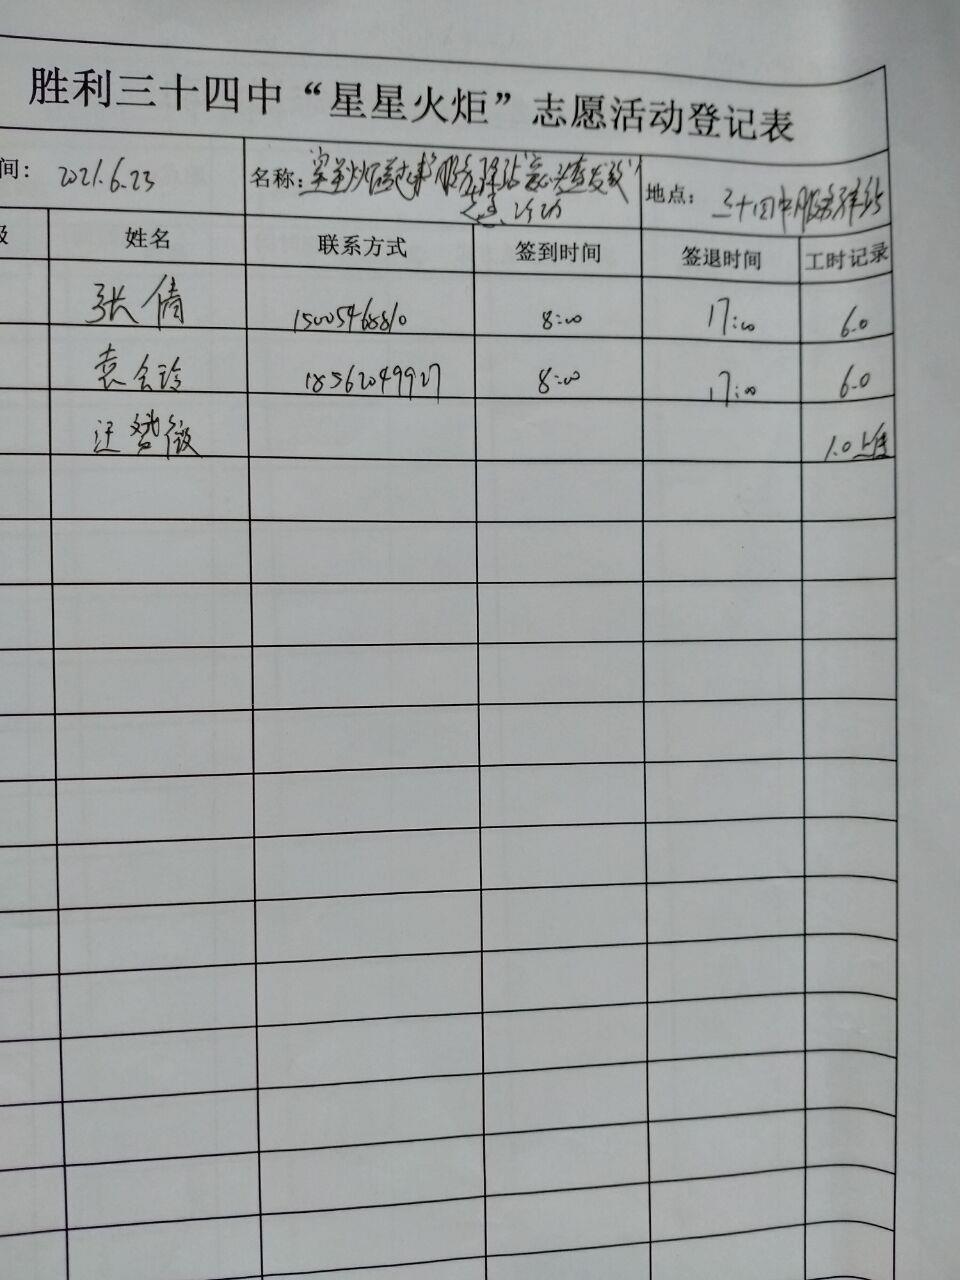 胜利三十四中“星星火炬”志愿活动登记表
间: 2021.6.23 名称: 地点: 三十四中服务驿站
级 姓名 联系方式 签到时间 签退时间 工时记录
张倩 15005468810 8:00 17:00 6.0
袁会玲 18562049927 8:00 17:00 6.0
1.0